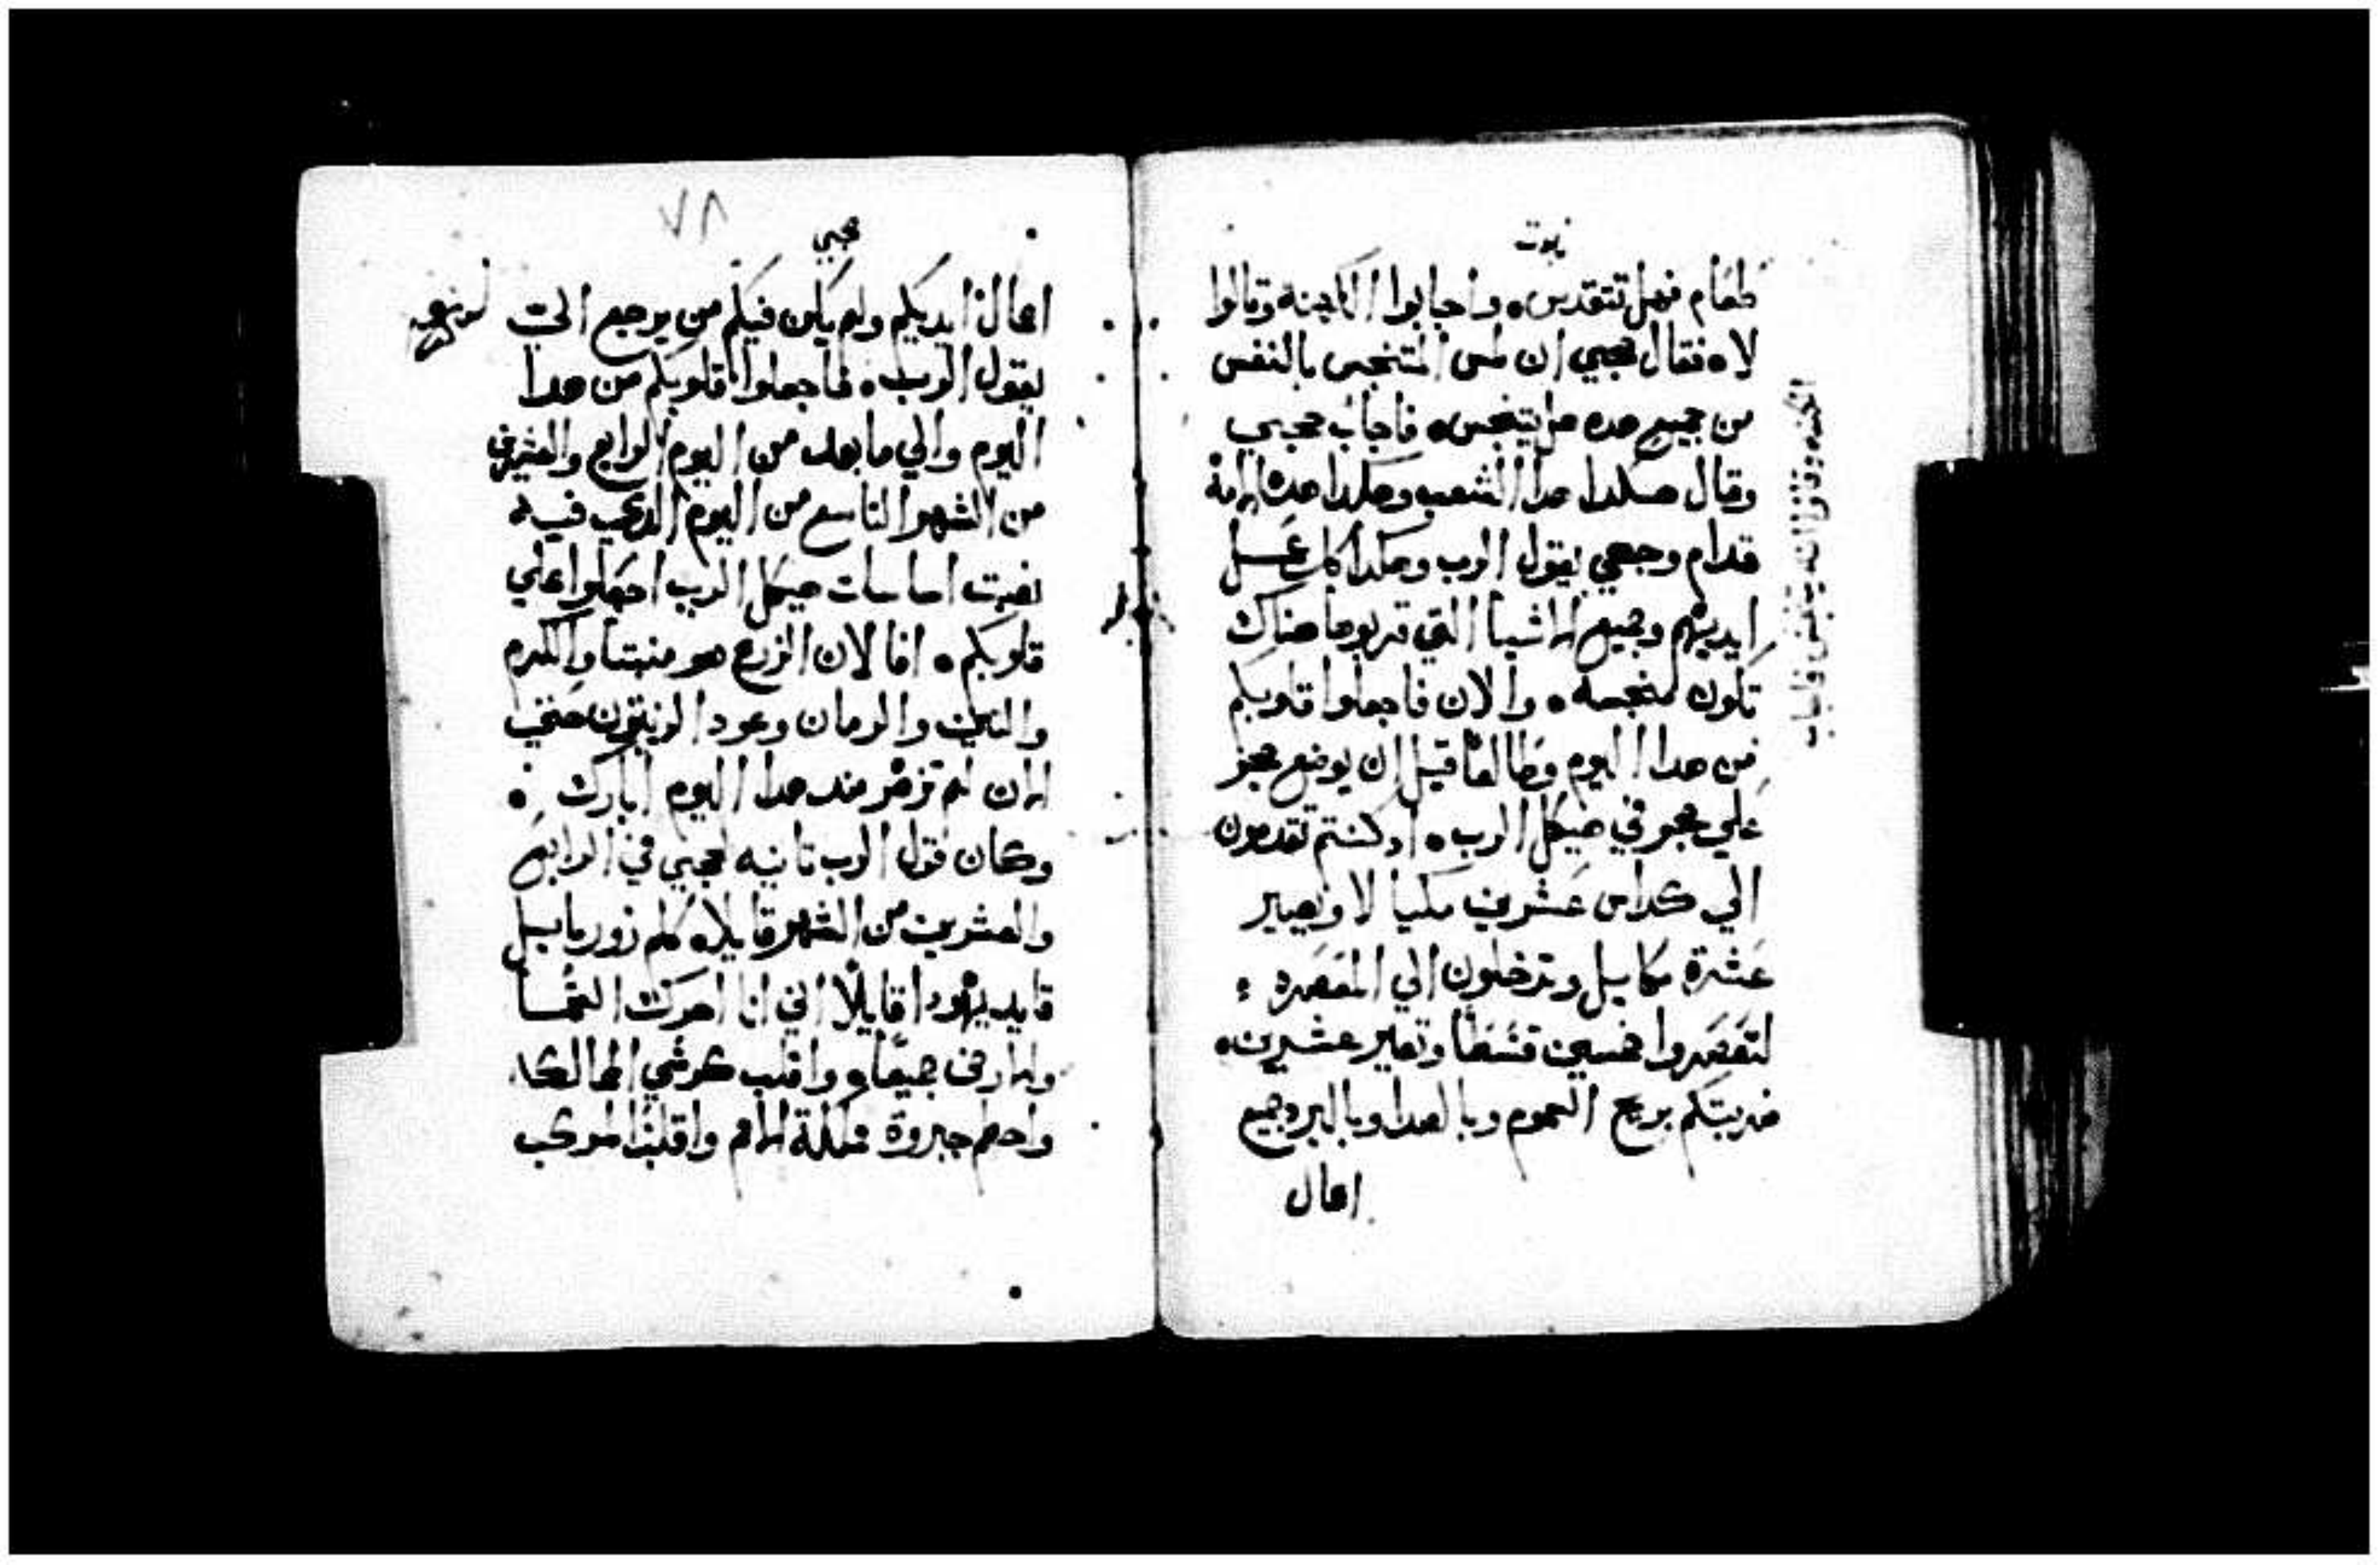 نبوت
طعام فهل تتقدس. واجابوا الكهنه وقالوا
لا. فقال حجي ان لمس المتنجس بالنفس
من جميع هده هل يتنجس. فاجاب حجي
وقال هكدا هدا الشعب وهكدا هده الامه
قدام وجهي يقول الرب وهكدا كل عمل
ايديهم وجميع الاشيا التي قربوها هناك
تكون منجسه. والان فاجعلوا قلوبكم
من هدا اليوم وطالعا قبل ان يوضع حجر
علي حجر في هيكل الرب. اد كنتم تقدمون
الي كداس عشرين مكيا لا وتصير
عشرة مكاييل وتدخلون الي المعصره
لتعصروا خمسين قسطا وتصير عشرين.
ضربتكم بريح السموم وبا لصدا وبا البرد جميع
اعمال
الكهنه وقالوا انه يتنجس فاجاب
٧٨
حجي
اعمال ايديكم ولم يكن فيكم من يرجع الي
يقول الرب. فاجعلوا قلوبكم من هدا
اليوم والي ما بعد من اليوم الرابع والعشرين
من الشهر التاسع من اليوم الدي فيه
نصبت اساسات هيكل الرب اجعلوا علي
قلوبكم. افا لان الزرع هو منبتا والكرم
والتين والرمان وعود الزيتون حتي
الان لم تزهر مند هدا اليوم ابارك.
وكان قول الرب تانيه لحجي في الرابع
والعشرين من الشهر قايلا. كلم زور بابيل
قايد يهودا قايلا اني انا احرك السما
والارض جميعا. واقلب كرسي الممالك
واحطم جبروة مملكة الامم واقلب المركب